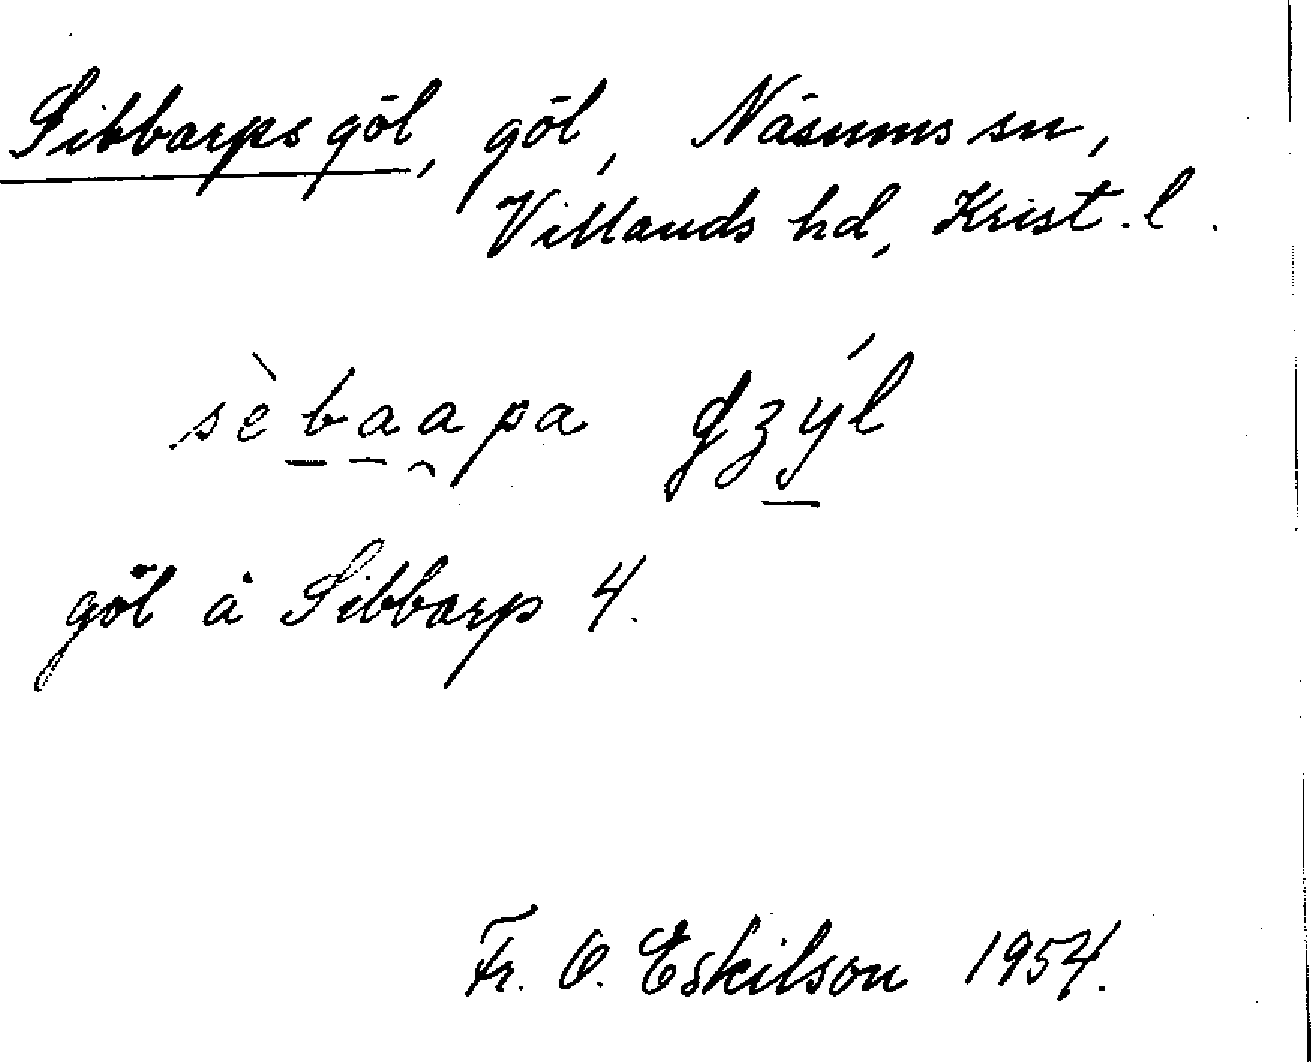 Sibbarps göl, göl, Näsums sn,
Villands hd, Krist. l.
sèbaapa gzýl
göl å Sibbarp 4.
Fr. O. Eskilson 1954.